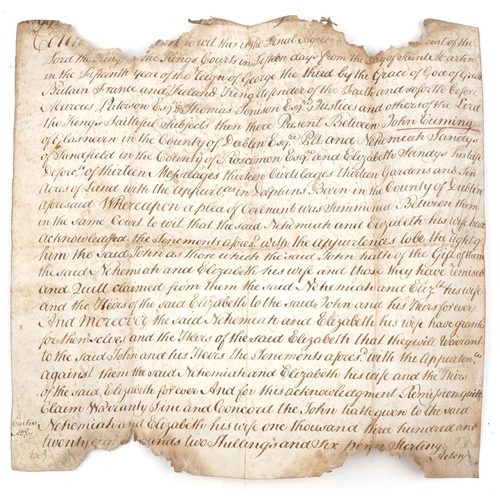 Lord the King the Kings Courts in fifteen days from the day of Saint Martin
in the fifteenth Year of the Reign of George the third by the Grace of God of Great
Britain France and Ireland King defender of the Faith and soforth before
Marcus Paterson Esqr Thomas Tenison Esqr Justices and others of the Lord
the Kings faithful Subjects then there Present Between John Euming
of Glasnevin in the County of Dublin Esqr Plt and Nehemiah Sandys
of Sandfield in the County of Roscomon Esqr and Elizabeth Sandys his wife
Defors of thirteen Messuages thirteen Curtilages thirteen Gardens and Ten
Acres of Land with the appurtces in Dolphins Barn in the County of Dublin
aforesaid Whereupon a plea of Covenant was Summoned Between them
in the same Court to wit that the said Nehemiah and Elizabeth his wife have
acknowledged the Tenements afores with the appurtences to be the right of
him the said John as those which the said John hath of the Gift of them
the said Nehemiah and Elizabeth his wife and those they have remised
and Quitt claimed from them the said Nehemiah and Elizth his wife
and the Heirs of the said Elizabeth to the said John and his Heirs for ever
And Moreover the said Nehemiah and Elizabeth his wife have granted
for themselves and the Heirs of the said Elizabeth that they will Warrant
to the said John and his Heirs the Tenements afores with the Appurtences
against them the said Nehemiah and Elizabeth his wife and the Heirs
of the said Elizabeth for ever And for this acknowledgment Remission quitt
Claim Warranty Fine and Concord the John hath given to the said
Nehemiah and Elizabeth his wife one thousand three hundred and
twenty pounds two Shillings and Six pence Sterling